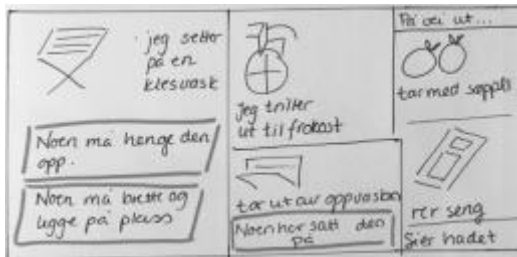 jeg setter
på en
klesvask
Noen må henge den
opp.
Noen må brette og
legge på plass
jeg triller
ut til frokost
tar ut av oppvasken
Noen har satt den
på
På vei ut...
tar med søppel
rer seng
Sier hadet